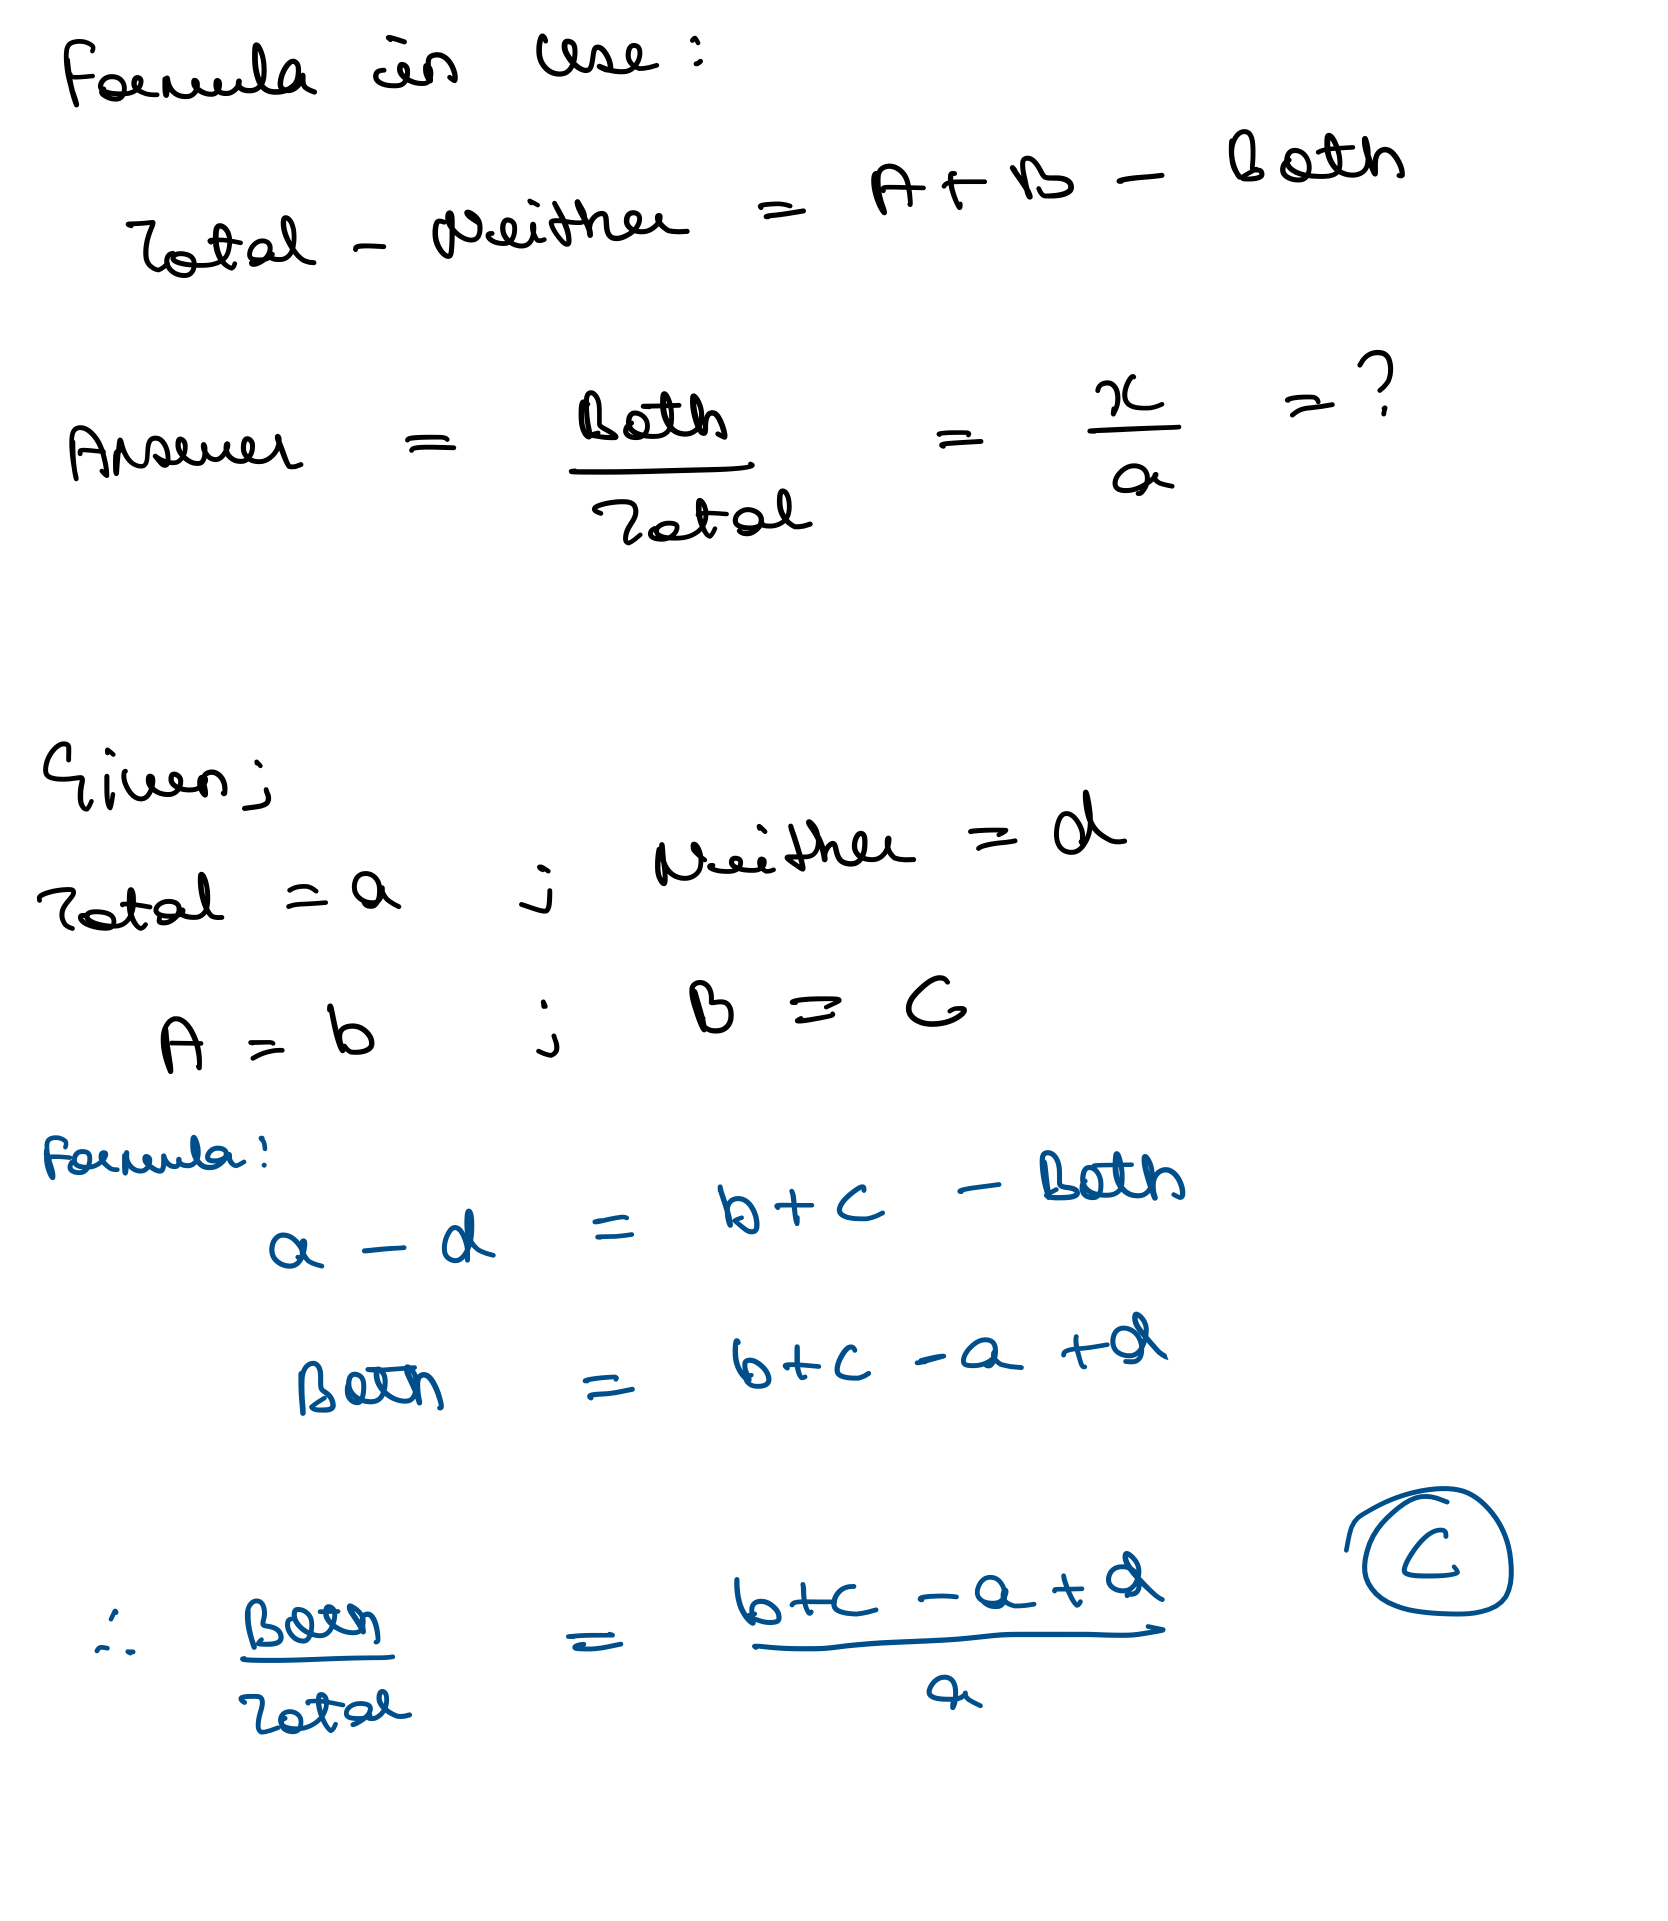 Formula in Use:
Total - Neither = A + B - Both
Answer = Both / Total = x / a = ?
Given;
Total = a ; Neither = d
A = b ; B = C
Formula:
a - d = b + c - Both
Both = b + c - a + d
∴ Both / Total = b + c - a + d / a
C